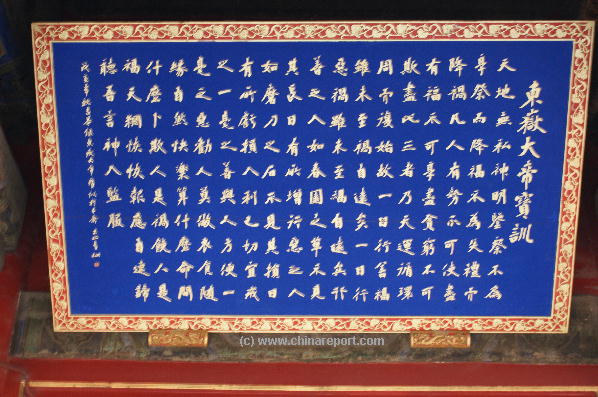 東嶽大帝寶訓
天地無私神明鑒察不為
享祭而降福不為失禮而
降禍凡人有勢不可使盡
有福不可享盡貧窮不可
欺盡此三者乃天運循環
周而復始故一日行善福
雖未至禍自遠矣一日行
惡禍雖未至福自遠矣行
善之人如春園之草不見
其長日有所增行惡之人
如磨刀之石不見其損日
有所虧損人利己切宜戒
之一毫之善與人方便一
毫之惡勸人莫做衣食隨
緣自然快樂算什麼命問
什麼卜欺人是禍饒人是
福天網恢恢報應自速諦
聽吾言神人監服
(c) www.chinareport.com